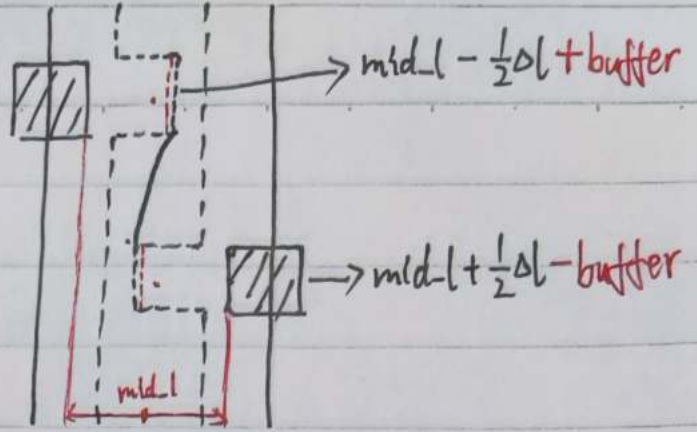 mid_l - 1/2 Δl + buffer
mid_l + 1/2 Δl - buffer
mid_l